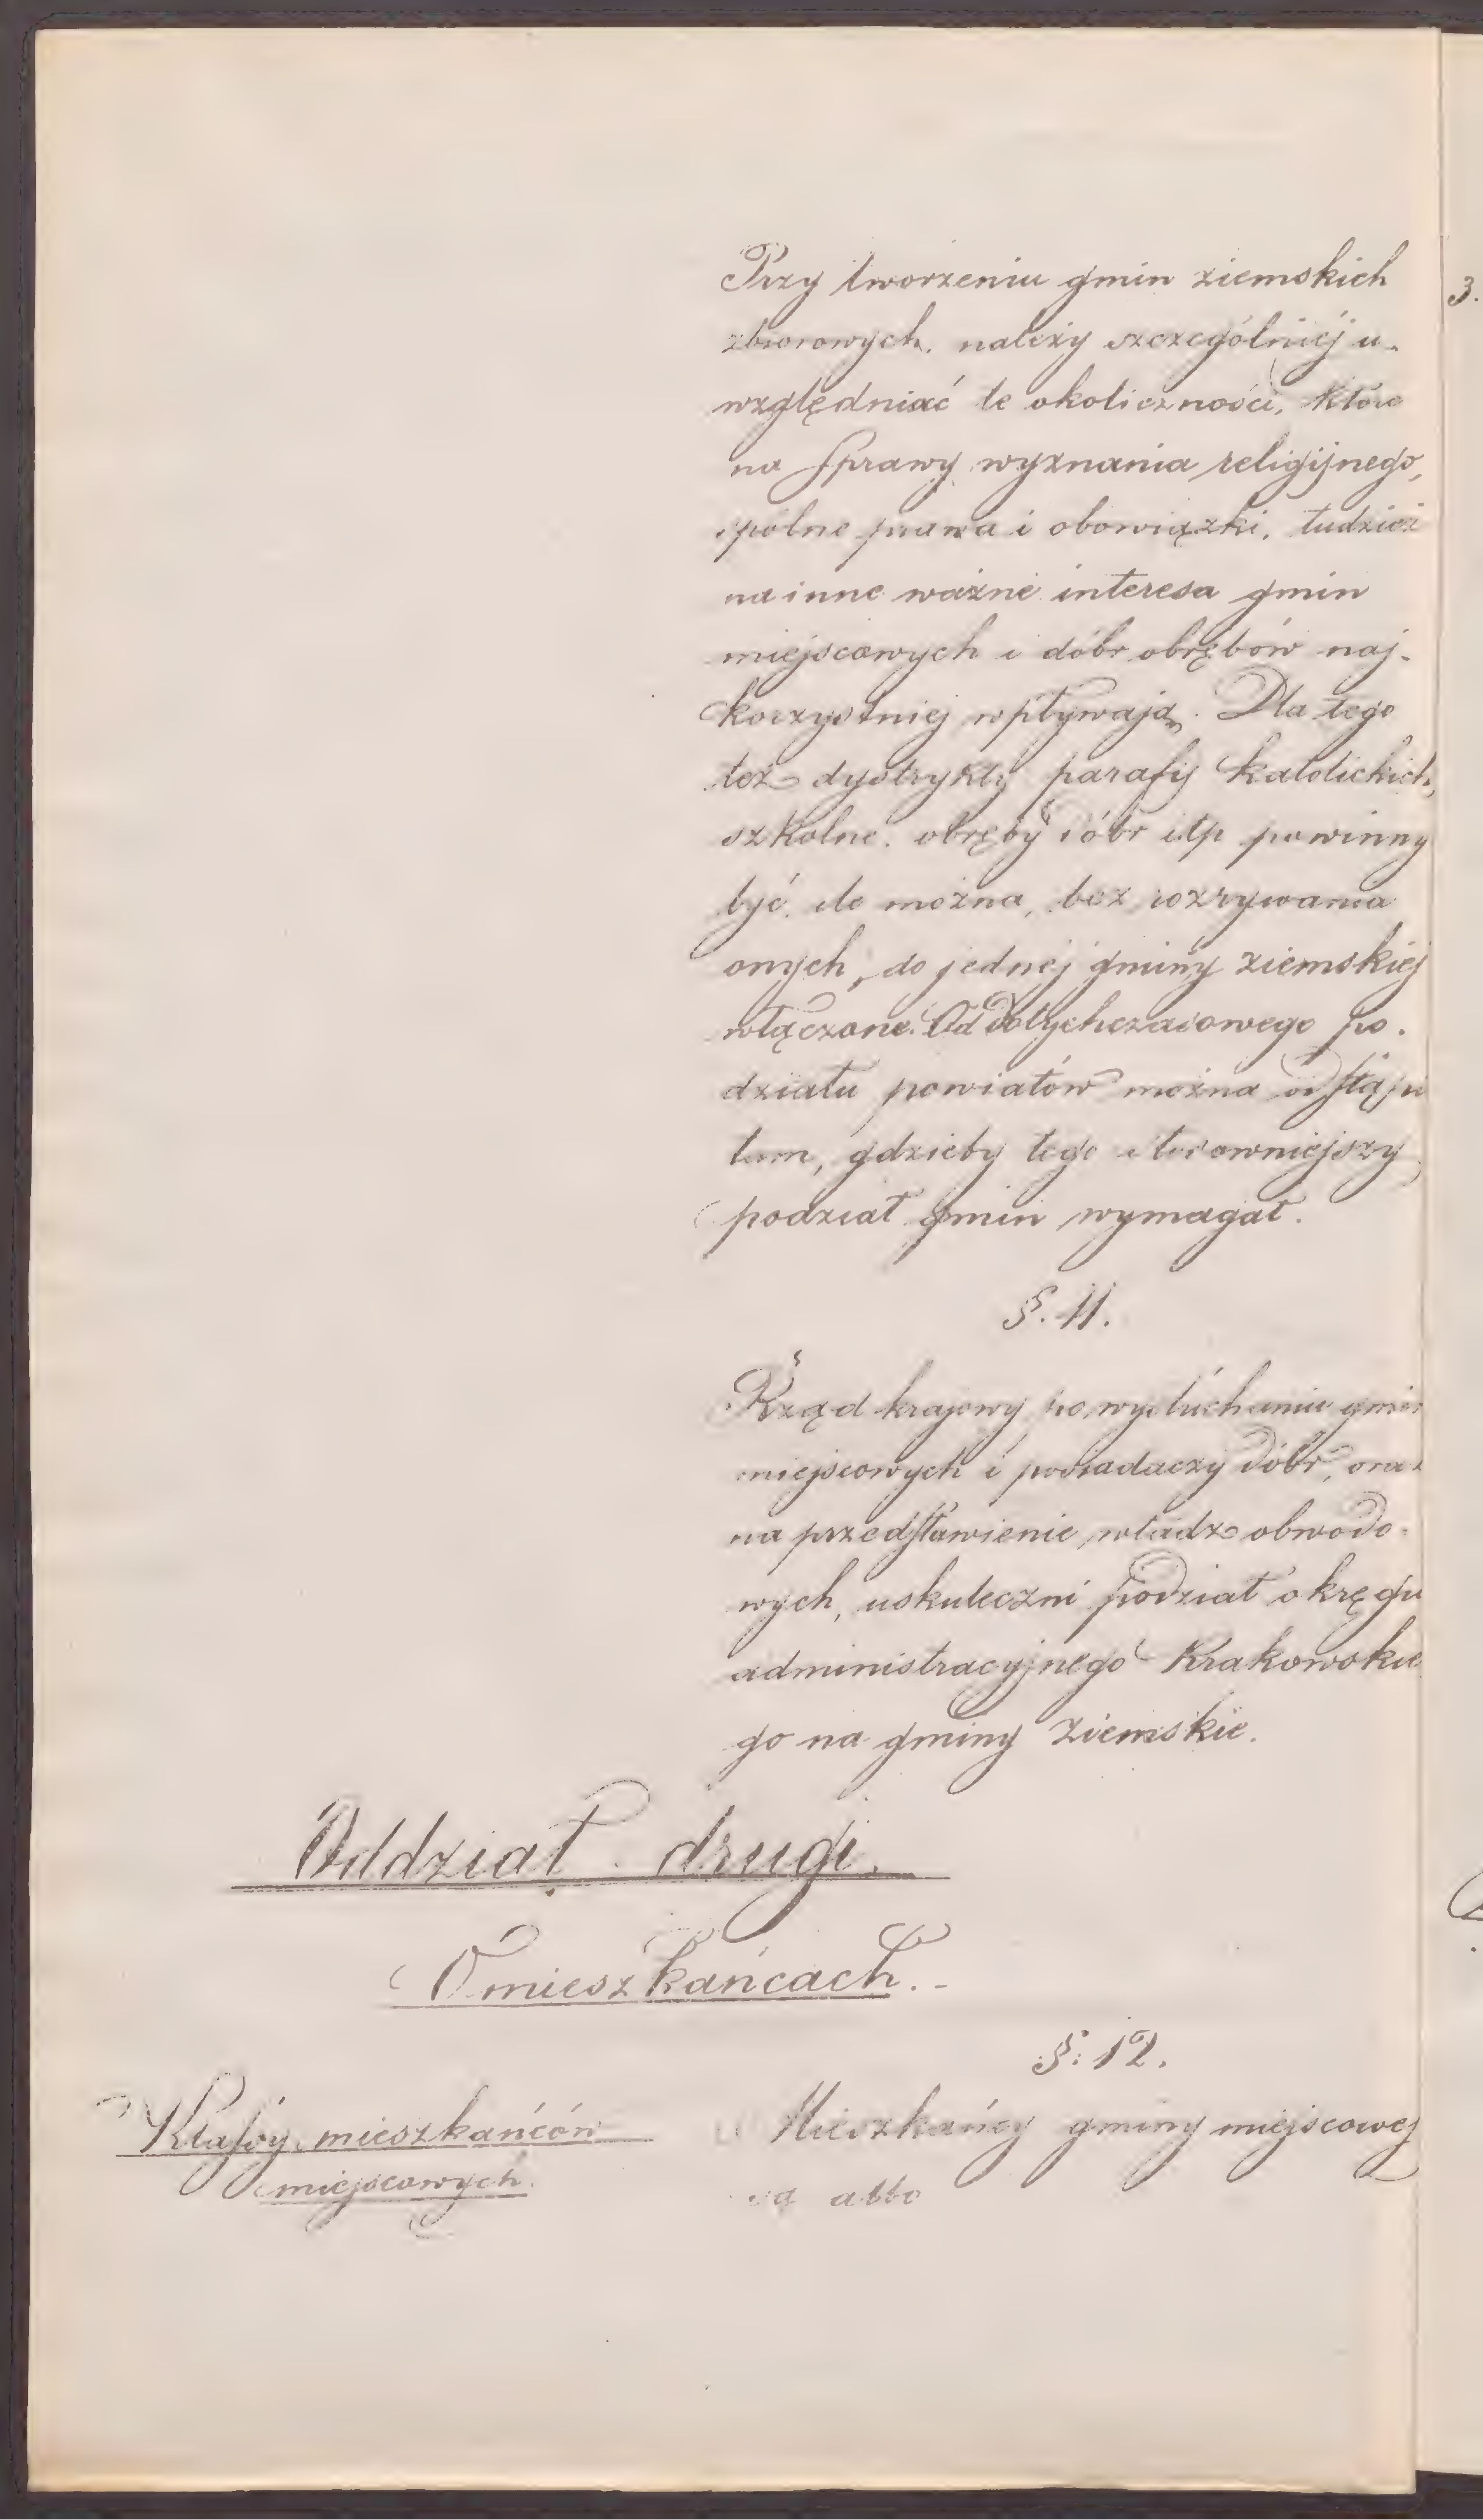 Przy tworzeniu gmin ziemskich
zbiorowych, należy szczególniéj u-
względniać te okoliczności, które
na sprawy wyznania religijnego,
spólne prawa i obowiązki, tudzież
na inne ważne interesa gmin
miejscowych i dóbr obrębów naj-
korzystniej wpływają. Dla tego
też dystrykty parafij katolickich,
szkolne, obręby dóbr itp powinny
być, ile można, bez rozrywania
onych, do jednéj gminy ziemskiej
włączone. Od dotychczasowego po-
działu powiatów można odstąpić
tam, gdzieby tego stosowniejszy
podział gmin wymagał.
§. 11.
Rząd krajowy po wysłuchaniu gmin
miejscowych i posiadaczy dóbr, oraz
na przedstawienie władz obwodo-
wych, uskuteczni podział okręgu
administracyjnego Krakowskie
go na gminy ziemskie.
Oddział drugi.
O mieszkańcach.
§. 12.
Klassy mieszkańców
miejscowych.
Mieszkańcy gminy miejscowej
są albo
3.